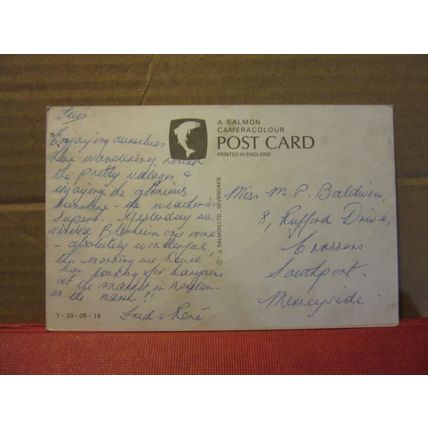 Tues.
Enjoying ourselves
here wandering round
the pretty villages &
enjoying the glorious
sunshine - the weather is
superb. Yesterday we
visited Blenheim once more
- absolutely wonderful,
this morning we have
been looking for bargains
at the market in Moreton-
in the marsh!!
Fred & René
1 - 33 - 05 - 14
© J. SALMON LTD. SEVENOAKS
A SALMON
CAMERACOLOUR
POST CARD
PRINTED IN ENGLAND
Miss M. P. Baldwin,
8, Rufford Drive,
Crossens
Southport.
Merseyside.